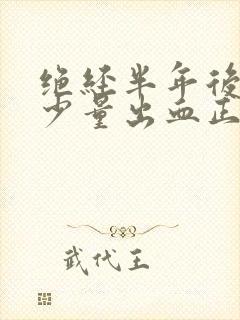 绝经半年後
少量出血正
武代王